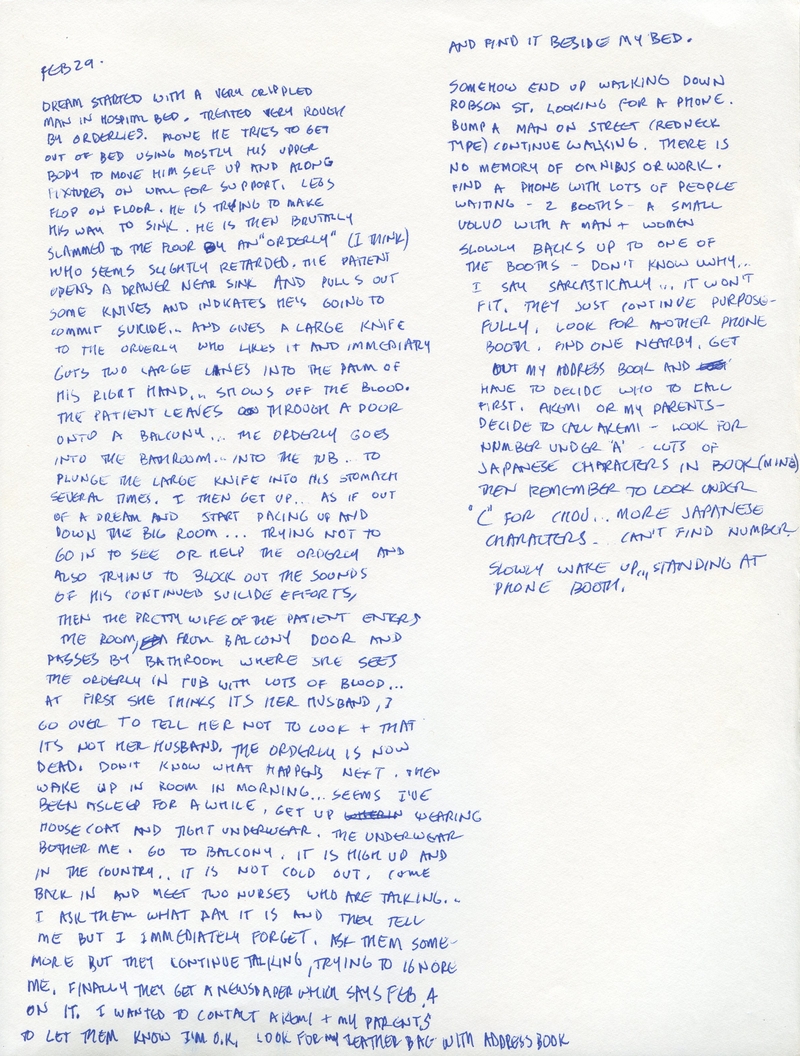 FEB 29.
DREAM STARTED WITH A VERY CRIPPLED
MAN IN HOSPITAL BED. TREATED VERY ROUGH
BY ORDERLIES. ALONE HE TRIES TO GET
OUT OF BED USING MOSTLY HIS UPPER
BODY TO MOVE HIM SELF UP AND ALONG
FIXTURES ON WALL FOR SUPPORT. LEGS
FLOP ON FLOOR. HE IS TRYING TO MAKE
HIS WAY TO SINK. HE IS THEN BRUTALLY
SLAMMED TO THE FLOOR BY AN "ORDERLY" (I THINK)
WHO SEEMS SLIGHTLY RETARDED. THE PATIENT
OPENS A DRAWER NEAR SINK AND PULLS OUT
SOME KNIVES AND INDICATES HE'S GOING TO
COMMIT SUICIDE... AND GIVES A LARGE KNIFE
TO THE ORDERLY WHO LIKES IT AND IMMEDIATLY
CUTS TWO LARGE LANES INTO THE PALM OF
HIS RIGHT HAND... SHOWS OFF THE BLOOD.
THE PATIENT LEAVES THROUGH A DOOR
ONTO A BALCONY... THE ORDERLY GOES
INTO THE BATHROOM... INTO THE TUB... TO
PLUNGE THE LARGE KNIFE INTO HIS STOMACH
SEVERAL TIMES. I THEN GET UP... AS IF OUT
OF A DREAM AND START PACING UP AND
DOWN THE BIG ROOM... TRYING NOT TO
GO IN TO SEE OR HELP THE ORDERLY AND
ALSO TRYING TO BLOCK OUT THE SOUNDS
OF HIS CONTINUED SUICIDE EFFORTS,
THEN THE PRETTY WIFE OF THE PATIENT ENTERS
THE ROOM, FROM BALCONY DOOR AND
PASSES BY BATHROOM WHERE SHE SEES
THE ORDERLY IN TUB WITH LOTS OF BLOOD...
AT FIRST SHE THINKS ITS HER HUSBAND, I
GO OVER TO TELL HER NOT TO LOOK + THAT
ITS NOT HER HUSBAND. THE ORDERLY IS NOW
DEAD. DON'T KNOW WHAT HAPPENS NEXT. THEN
WAKE UP IN ROOM IN MORNING... SEEMS I'VE
BEEN ASLEEP FOR A WHILE, GET UP WEARING
HOUSECOAT AND TIGHT UNDERWEAR. THE UNDERWEAR
BOTHER ME. GO TO BALCONY. IT IS HIGH UP AND
IN THE COUNTRY.. IT IS NOT COLD OUT. COME
BACK IN AND MEET TWO NURSES WHO ARE TALKING...
I ASK THEM WHAT DAY IT IS AND THEY TELL
ME BUT I IMMEDIATELY FORGET. ASK THEM SOME-
MORE BUT THEY CONTINUE TALKING, TRYING TO IGNORE
ME, FINALLY THEY GET A NEWSPAPER WHICH SAYS FEB. 4
ON IT. I WANTED TO CONTACT AKEMI + MY PARENTS
TO LET THEM KNOW I'M O.K. LOOK FOR MY LEATHER BAG WITH ADDRESS BOOK
AND FIND IT BESIDE MY BED.
SOMEHOW END UP WALKING DOWN
ROBSON ST. LOOKING FOR A PHONE.
BUMP A MAN ON STREET (REDNECK
TYPE) CONTINUE WALKING. THERE IS
NO MEMORY OF OMNIBUS OR WORK.
FIND A PHONE WITH LOTS OF PEOPLE
WAITING - 2 BOOTHS - A SMALL
VOLVO WITH A MAN + WOMEN
SLOWLY BACKS UP TO ONE OF
THE BOOTHS - DON'T KNOW WHY...
I SAY SARCASTICALLY... IT WON'T
FIT. THEY JUST CONTINUE PURPOSE-
FULLY. LOOK FOR ANOTHER PHONE
BOOTH. FIND ONE NEARBY. GET
OUT MY ADDRESS BOOK AND
HAVE TO DECIDE WHO TO CALL
FIRST. AKEMI OR MY PARENTS-
DECIDE TO CALL AKEMI - LOOK FOR
NUMBER UNDER 'A' - LOTS OF
JAPANESE CHARACTERS IN BOOK (MINE)
THEN REMEMBER TO LOOK UNDER
"C" FOR CHOU... MORE JAPANESE
CHARACTERS... CAN'T FIND NUMBER.
SLOWLY WAKE UP... STANDING AT
PHONE BOOTH.